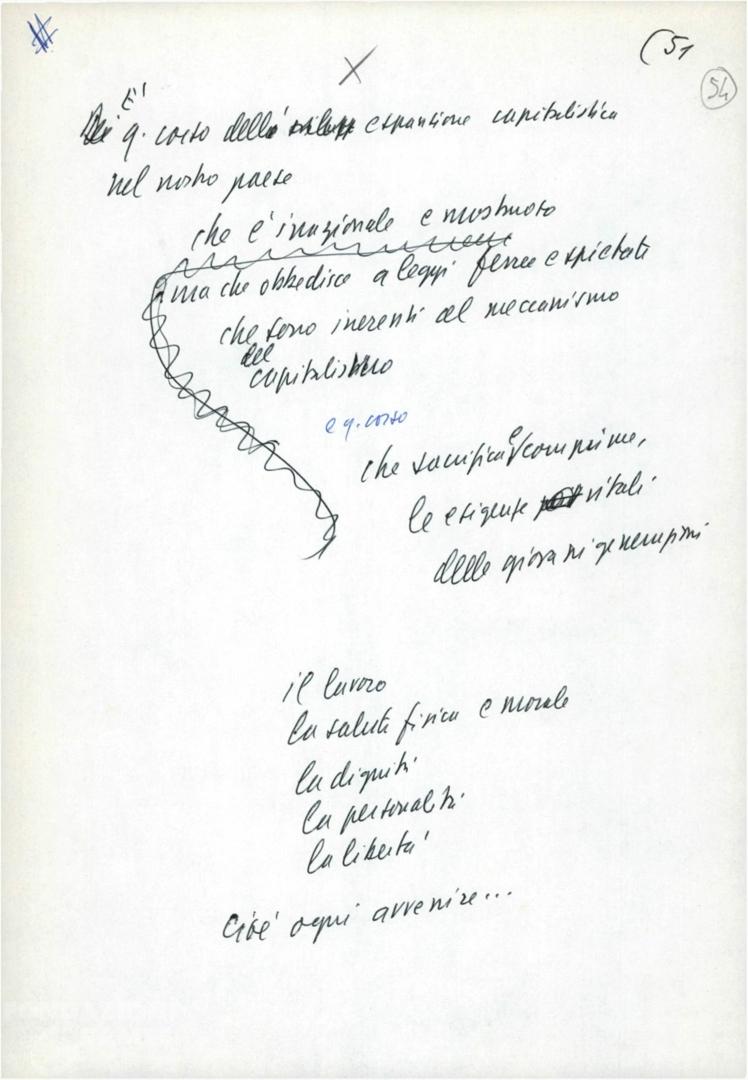 X
(51
54
E'
q. corso dell' espansione capitalistica
nel nostro paese
che è irrazionale e mostruoso
ma che obbedisce a leggi ferree e spietate
che sono inerenti al meccanismo
del
capitalismo
e q. corso
che sacrifica e comprime,
le esigenze vitali
delle giovani generazioni
il lavoro
la salute fisica e morale
la dignità
la personalità
la libertà
Cioè ogni avvenire...